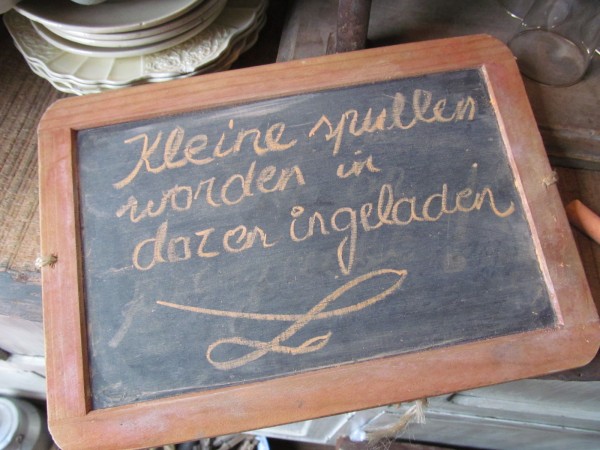 Kleine spullen
worden in
dozen ingeladen